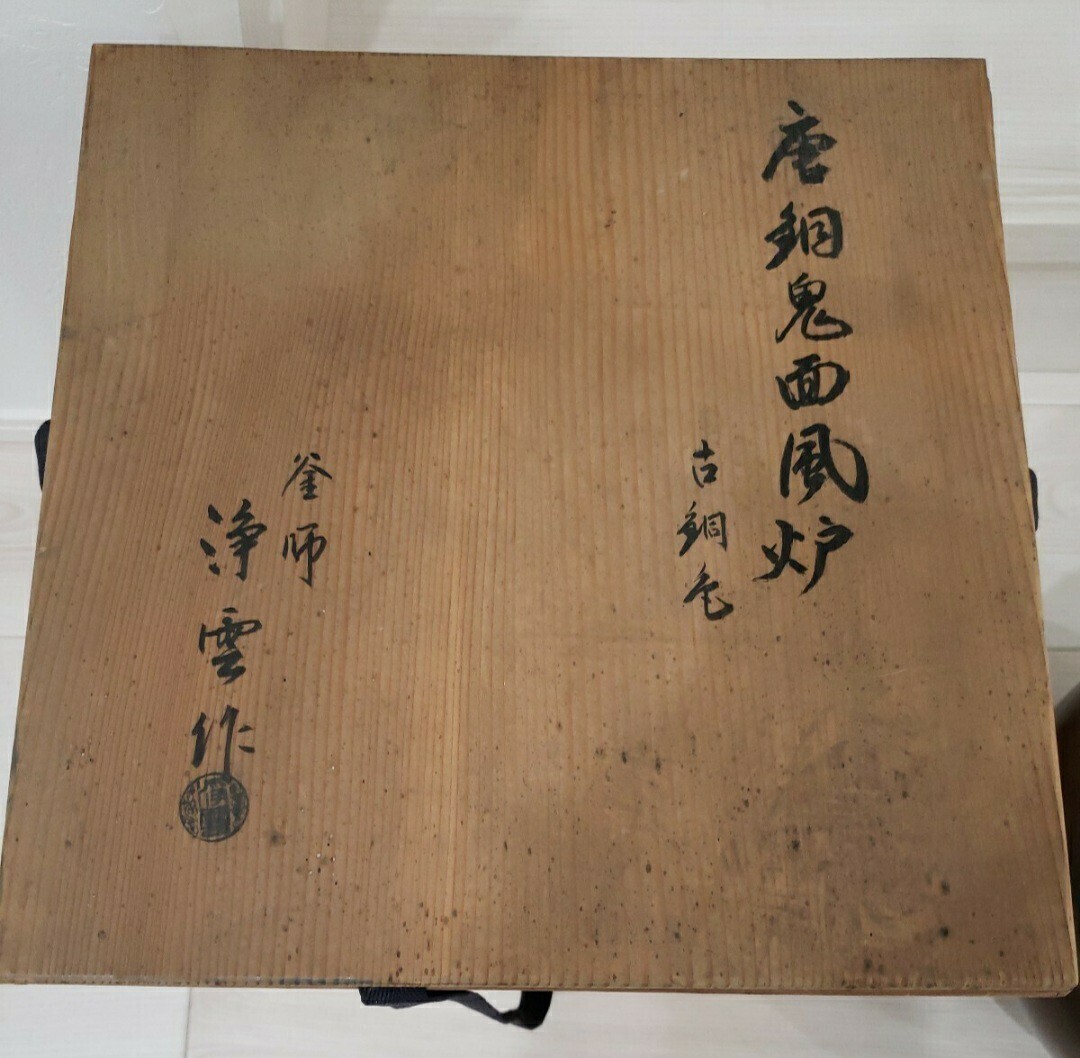 唐銅鬼面風炉
古銅色
釜師
浄雲作